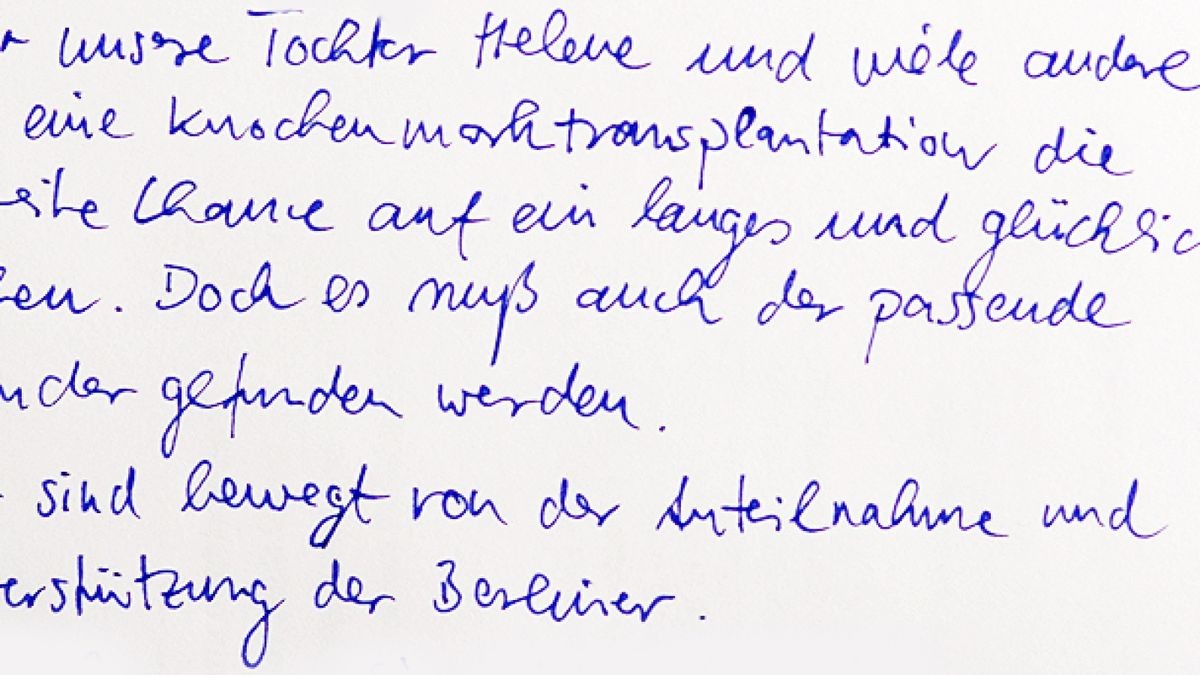 r unsere Tochter Helene und viele andere
eine Knochenmarktransplantation die
eite Chance auf ein langes und glücklic
en. Doch es muß auch der passende
nder gefunden werden.
sind bewegt von der Anteilnahme und
erstützung der Berliner.